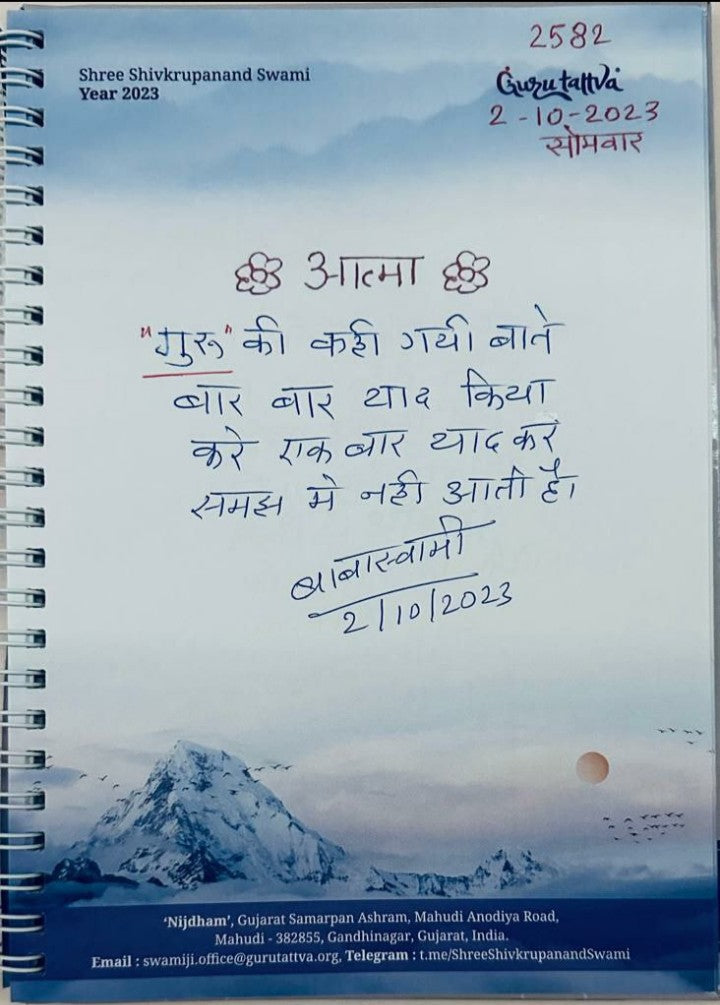 2582
Shree Shivkrupanand Swami
Year 2023
Gurutattva
2-10-2023
सोमवार
आत्मा
"गुरु" की कही गयी बाते
बार बार याद किया
करे एक बार याद कर
समझ मे नही आती है।
बाबास्वामी
2/10/2023
'Nijdham', Gujarat Samarpan Ashram, Mahudi Anodiya Road,
Mahudi - 382855, Gandhinagar, Gujarat, India.
Email : swamiji.office@gurutattva.org, Telegram : t.me/ShreeShivkrupanandSwami